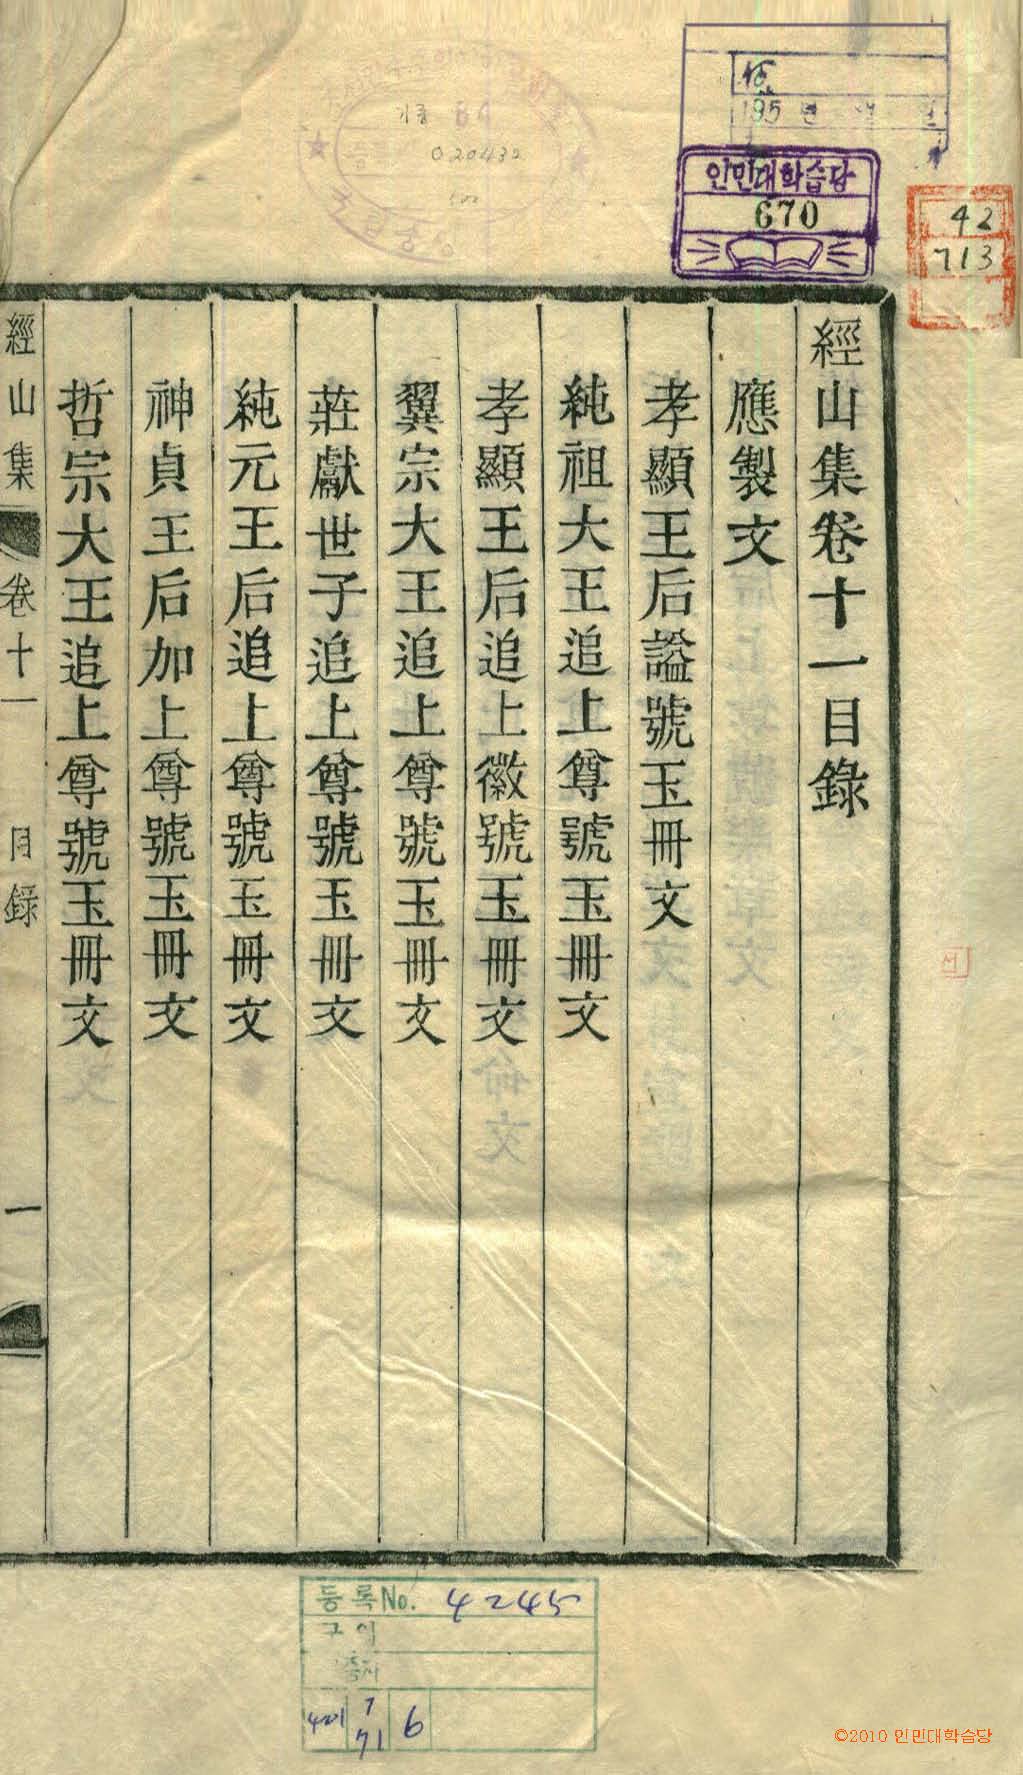 經山集卷十一目錄
應製文
孝顯王后諡號玉冊文
純祖大王追上尊號玉冊文
孝顯王后追上徽號玉冊文
翼宗大王追上尊號玉冊文
莊獻世子追上尊號玉冊文
純元王后追上尊號玉冊文
神貞王后加上尊號玉冊文
哲宗大王追上尊號玉冊文
經山集 卷十一 目錄 一
인민대학습당
670
42
713
195 년
기증 B4
020432
서
등록No. 42445
71
6
©2010 인민대학습당